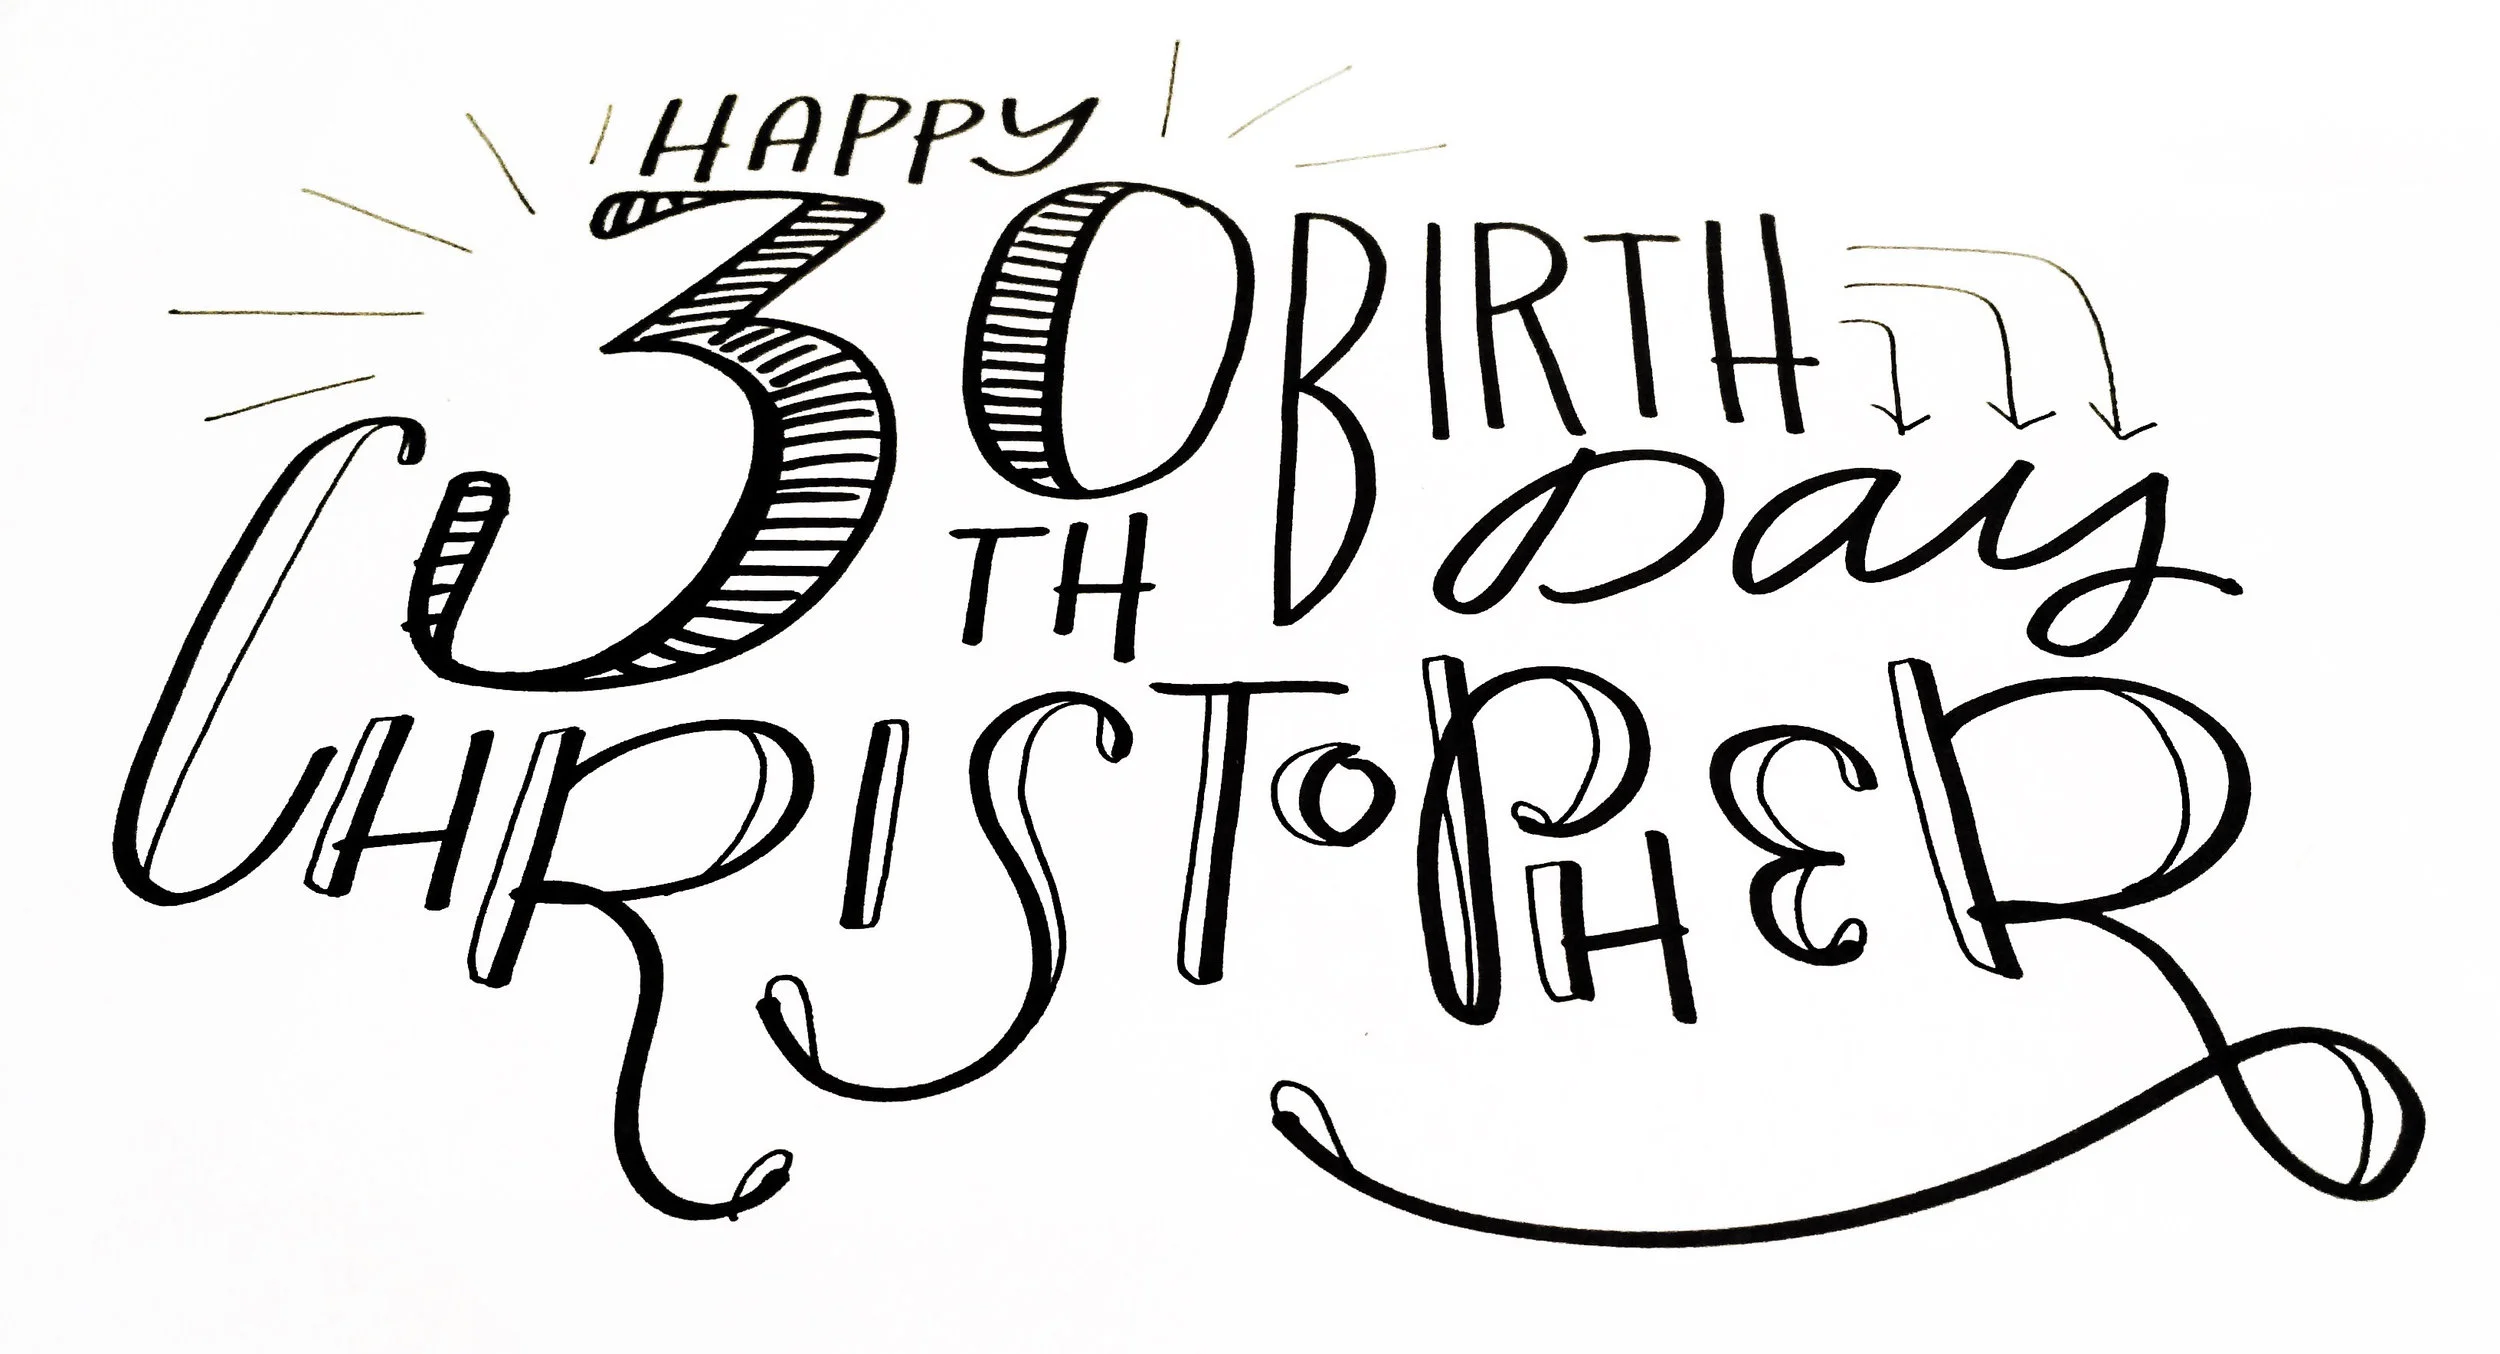 HAPPY
30TH BIRTH
Day
CHRISTOPHER